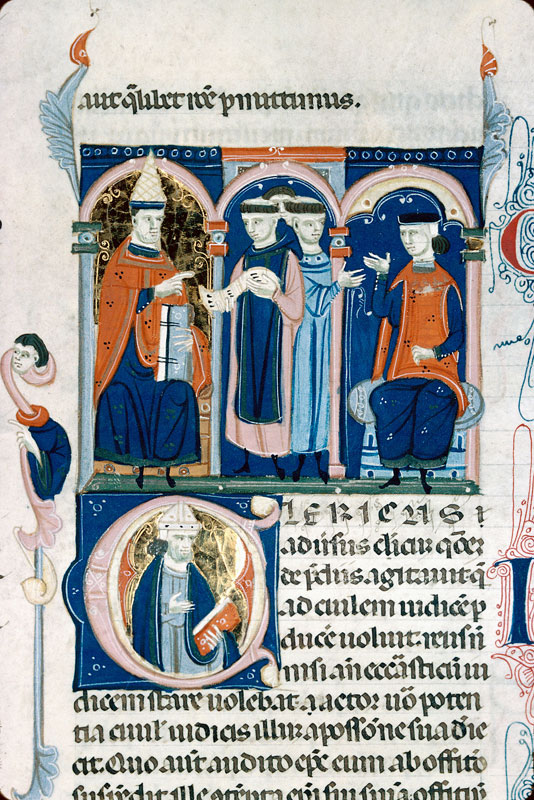 aut q̃libet rẽ pmittimus.
CLERICUS
adũsus clicũ q̃õẽ
de p̃diis agitauit q̃
ad ciuilem iudicẽ p
ducẽ uoluit. reus ñ
nisi añ eccãsticũ iu
dicem stare uolebat. actor uõ poten
tia ciuil' iudicis illũ a possõne sua deie
cit. Quo aut̃ audito ep̃c eum ab offitio